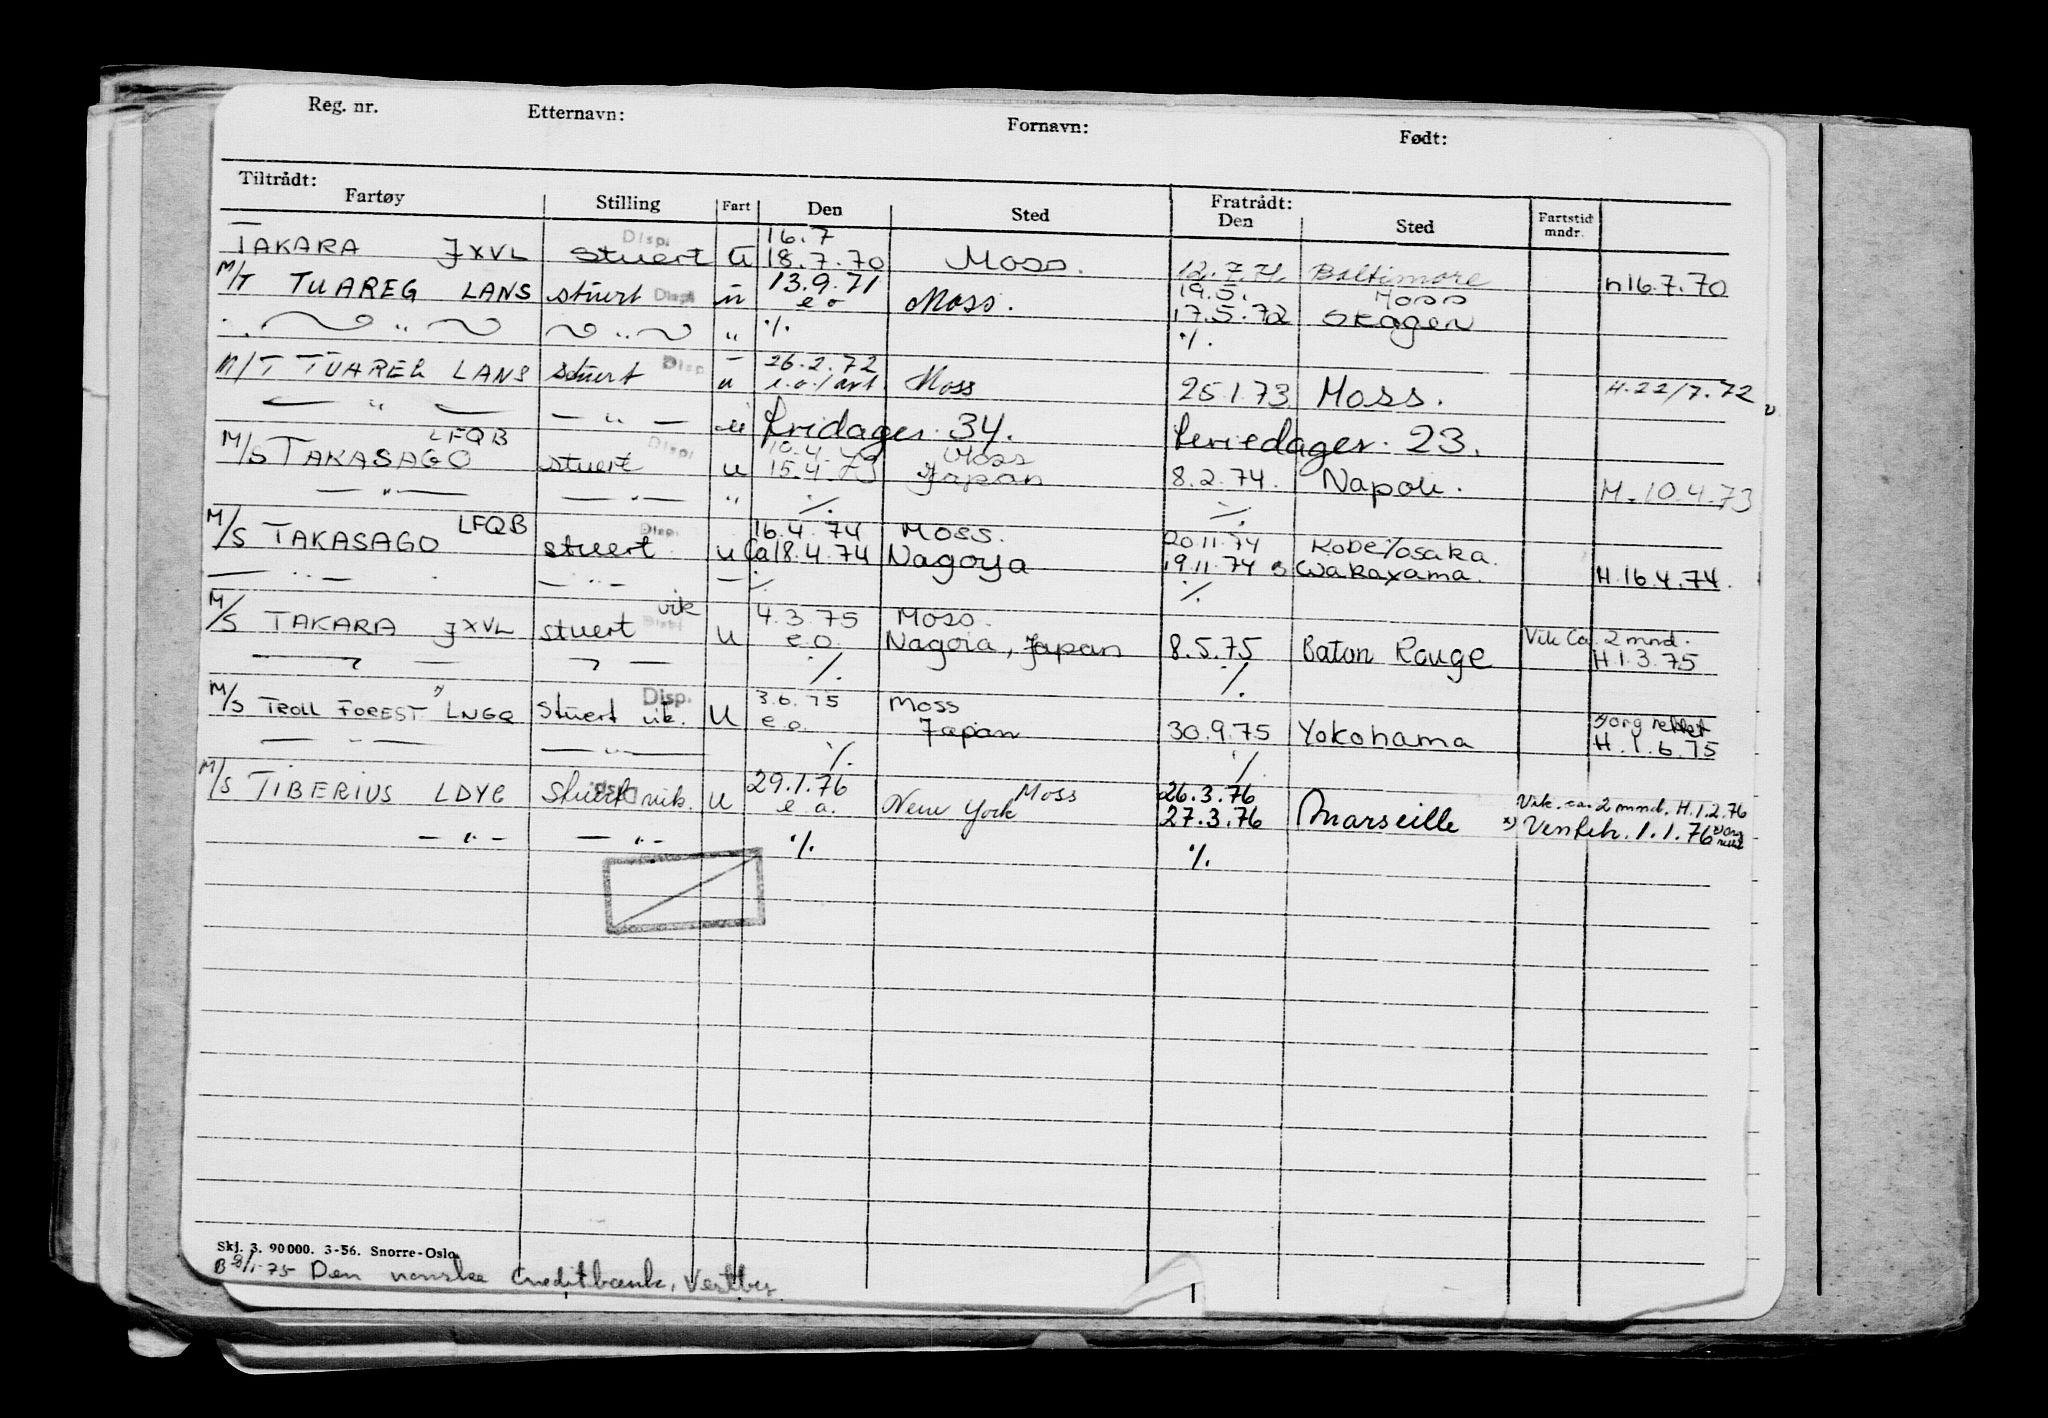 Reg. nr. Etternavn: Fornavn: Født:
Tiltrådt: Fratrådt:
Fartøy Stilling Fart Den Sted Den Sted Fartstid mndr.
Disp. 16.7
TAKARA JXVL stuert U 18.7.70 Moss. 12.7.71 Baltimore h16.7.70
13.9.71 19.5. Moss
M/T TUAREG LANS stuert Disp. u e o Moss. 17.5.72 Skagen
" " " % %
26.2.72
M/T TUAREG LANS stuert Disp u e.o./avt. Moss 25.1.73 Moss. H.22/7.72
— " — — " — u Fridager. 34. Feriedager. 23.
LFQB Disp. 10.4.73 Moss
M/S TAKASAGO stuert u 15.4.73 Japan 8.2.74. Napoli. H.10.4.73
— " — — " — " % %
LFQB Disp. 16.4.74 Moss. 20.11.74 Kobe/osaka.
M/S TAKASAGO stuert u Ca 18.4.74 Nagoya 19.11.74 Wakayama. H.16.4.74.
— " — — " — — % %
vik 4.3.75 Moss. Vik Ca. 2 mnd.
M/S TAKARA JXVL stuert Disp. u e.o. Nagoia, Japan 8.5.75 Baton Rouge H.1.3.75
— " — — " — % %
Disp. 3.6.75 Moss org rettet
M/S TROLL FOREST LNGQ Stuert vik. U e.o. Japan 30.9.75 Yokohama H.1.6.75
— " — — " — % %
29.1.76 Moss 26.3.76 Vik. ca. 2 mnd. H.1.2.76
M/S TIBERIUS LDYG Stuert Disp vik. u e o. New York 27.3.76 Marseille x) Ventetr. 1.1.76 x) org rettet
— " — — " — % %
Skj. 3. 90 000. 3-56. Snorre-Oslo.
Den norske Creditbank, Vestby